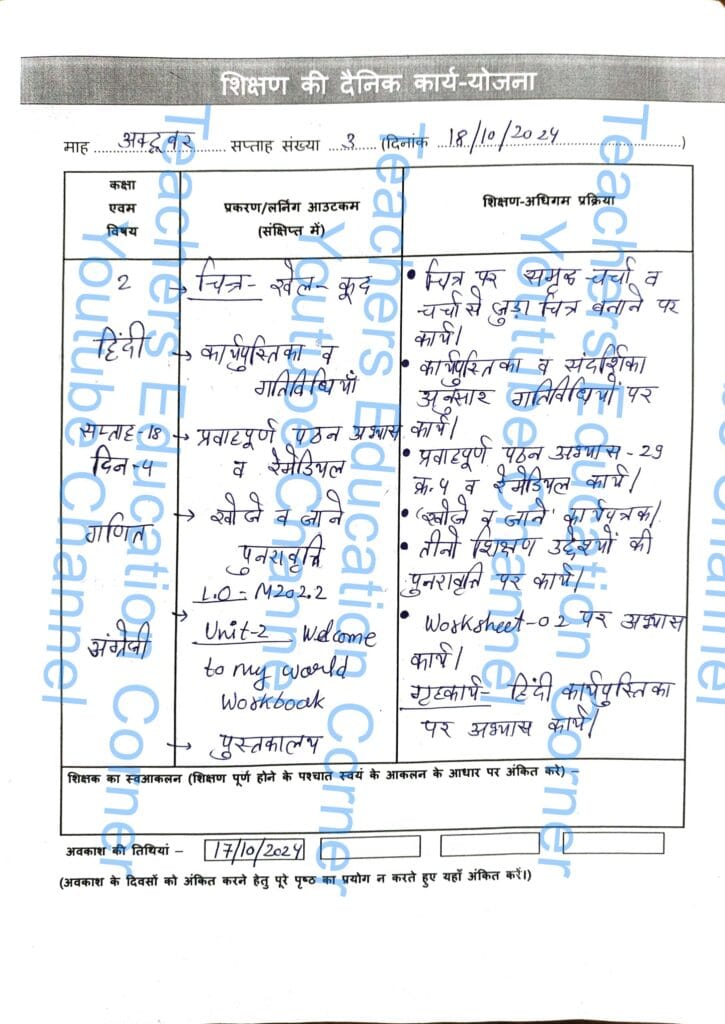 शिक्षण की दैनिक कार्य-योजना
माह अक्टूबर सप्ताह संख्या 3 (दिनांक 18/10/2024)
कक्षा
एवम
विषय
प्रकरण/लर्निंग आउटकम
(संक्षिप्त में)
शिक्षण-अधिगम प्रक्रिया
2
हिंदी
सप्ताह-18
दिन-4
गणित
अंग्रेजी
→ चित्र- खेल-कूद
→ कार्यपुस्तिका व
गतिविधियाँ
→ प्रवाहपूर्ण पठन अभ्यास
व रेमेडियल
→ खोजे व जाने
पुनरावृत्ति
L.O- M202.2
→ Unit-2 Welcome
to my world
Workbook
→ पुस्तकालय
• चित्र पर समूह चर्चा व
चर्चा से जुड़ा चित्र बनाने पर
कार्य।
• कार्यपुस्तिका व संदर्शिका
अनुसार गतिविधियों पर
कार्य।
• प्रवाहपूर्ण पठन अभ्यास-29
क्र.4 व रेमेडियल कार्य।
• 'खोजे व जाने' कार्यपत्रक।
• तीनो शिक्षण उद्देश्यों की
पुनरावृत्ति पर कार्य।
• Worksheet-02 पर अभ्यास
कार्य।
गृहकार्य- हिंदी कार्यपुस्तिका
पर अभ्यास कार्य।
शिक्षक का स्वआकलन (शिक्षण पूर्ण होने के पश्चात स्वयं के आकलन के आधार पर अंकित करे) –
अवकाश की तिथियां – 17/10/2024
(अवकाश के दिवसों को अंकित करने हेतु पूरे पृष्ठ का प्रयोग न करते हुए यहाँ अंकित करें।)
Teachers Education Corner
Youtube Channel
Teachers Education Corner
Youtube Channel
Teachers Education Corner
Youtube Channel